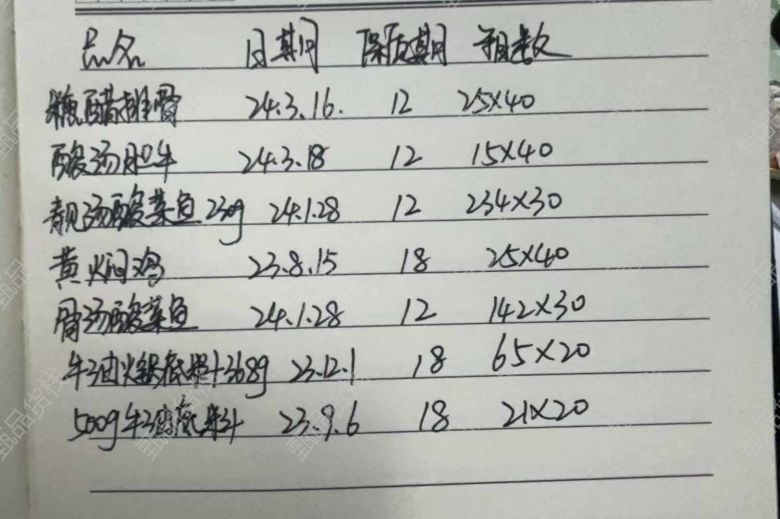 品名 日期 保质期 箱数
糖醋排骨 24.3.16. 12 25×40
酸汤肥牛 24.3.18 12 15×40
靓汤酸菜鱼230g 24.1.28 12 234×30
黄焖鸡 23.8.15 18 25×40
骨汤酸菜鱼 24.1.28 12 142×30
牛油火锅底料368g 23.12.1 18 65×20
500g牛油底料 23.9.6 18 21×20